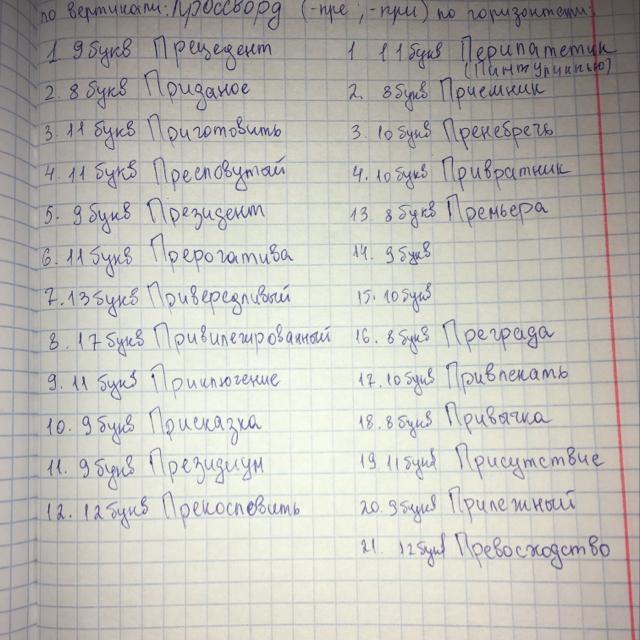 по вертикали: Кроссворд (-пре ; -при) по горизонтали:
1 9 букв Прецедент
2. 8 букв Приданое
3. 11 букв Приготовить
4. 11 букв Пресловутый
5. 9 букв Президент
6. 11 букв Прерогатива
7. 13 букв Привередливый
8. 17 букв Привилегированный
9. 11 букв Приключение
10. 9 букв Присказка
11. 9 букв Президиум
12. 12 букв Прекословить
1 11 букв Перипатетик
(Пинтуриккьо)
2. 8 букв Приемник
3. 10 букв Пренебречь
4. 10 букв Привратник
13 8 букв Премьера
14. 9 букв
15. 10 букв
16. 8 букв Преграда
17. 10 букв Привлекать
18. 8 букв Привычка
19 11 букв Присутствие
20. 9 букв Прилежный
21. 12 букв Превосходство